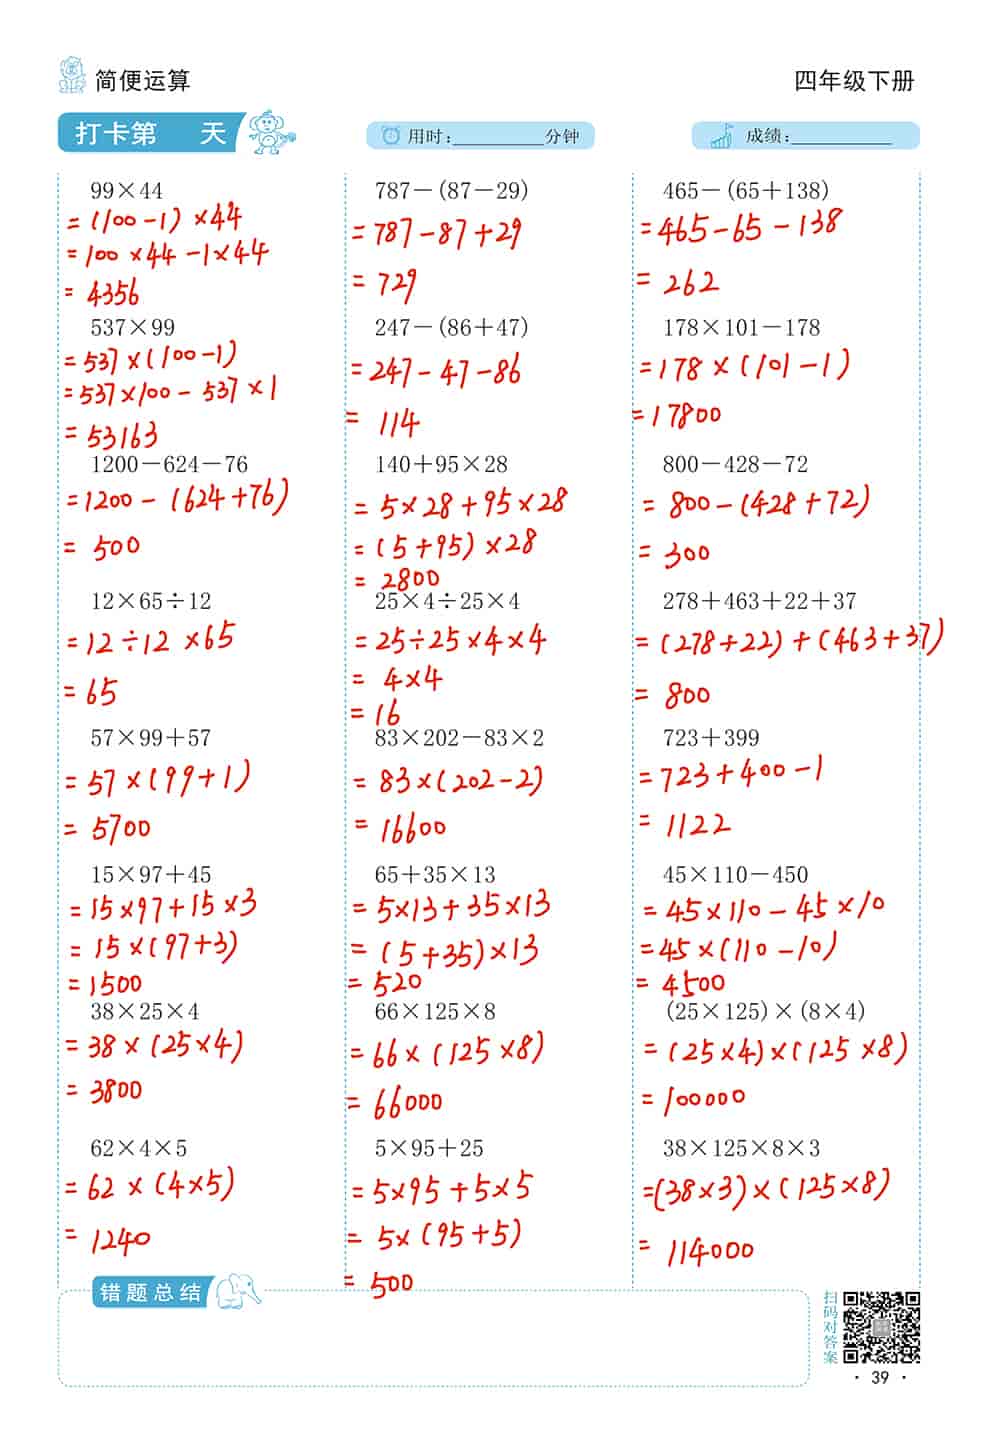 简便运算
四年级下册
打卡第 天
用时:__________分钟
成绩:__________
99×44
=(100-1)×44
=100×44-1×44
=4356
787-(87-29)
=787-87+29
=729
465-(65+138)
=465-65-138
=262
537×99
=537×(100-1)
=537×100-537×1
=53163
247-(86+47)
=247-47-86
=114
178×101-178
=178×(101-1)
=17800
1200-624-76
=1200-(624+76)
=500
140+95×28
=5×28+95×28
=(5+95)×28
=2800
800-428-72
=800-(428+72)
=300
12×65÷12
=12÷12×65
=65
25×4÷25×4
=25÷25×4×4
=4×4
=16
278+463+22+37
=(278+22)+(463+37)
=800
57×99+57
=57×(99+1)
=5700
83×202-83×2
=83×(202-2)
=16600
723+399
=723+400-1
=1122
15×97+45
=15×97+15×3
=15×(97+3)
=1500
65+35×13
=5×13+35×13
=(5+35)×13
=520
45×110-450
=45×110-45×10
=45×(110-10)
=4500
38×25×4
=38×(25×4)
=3800
66×125×8
=66×(125×8)
=66000
(25×125)×(8×4)
=(25×4)×(125×8)
=100000
62×4×5
=62×(4×5)
=1240
5×95+25
=5×95+5×5
=5×(95+5)
=500
38×125×8×3
=(38×3)×(125×8)
=114000
错题总结
扫码对答案
· 39 ·